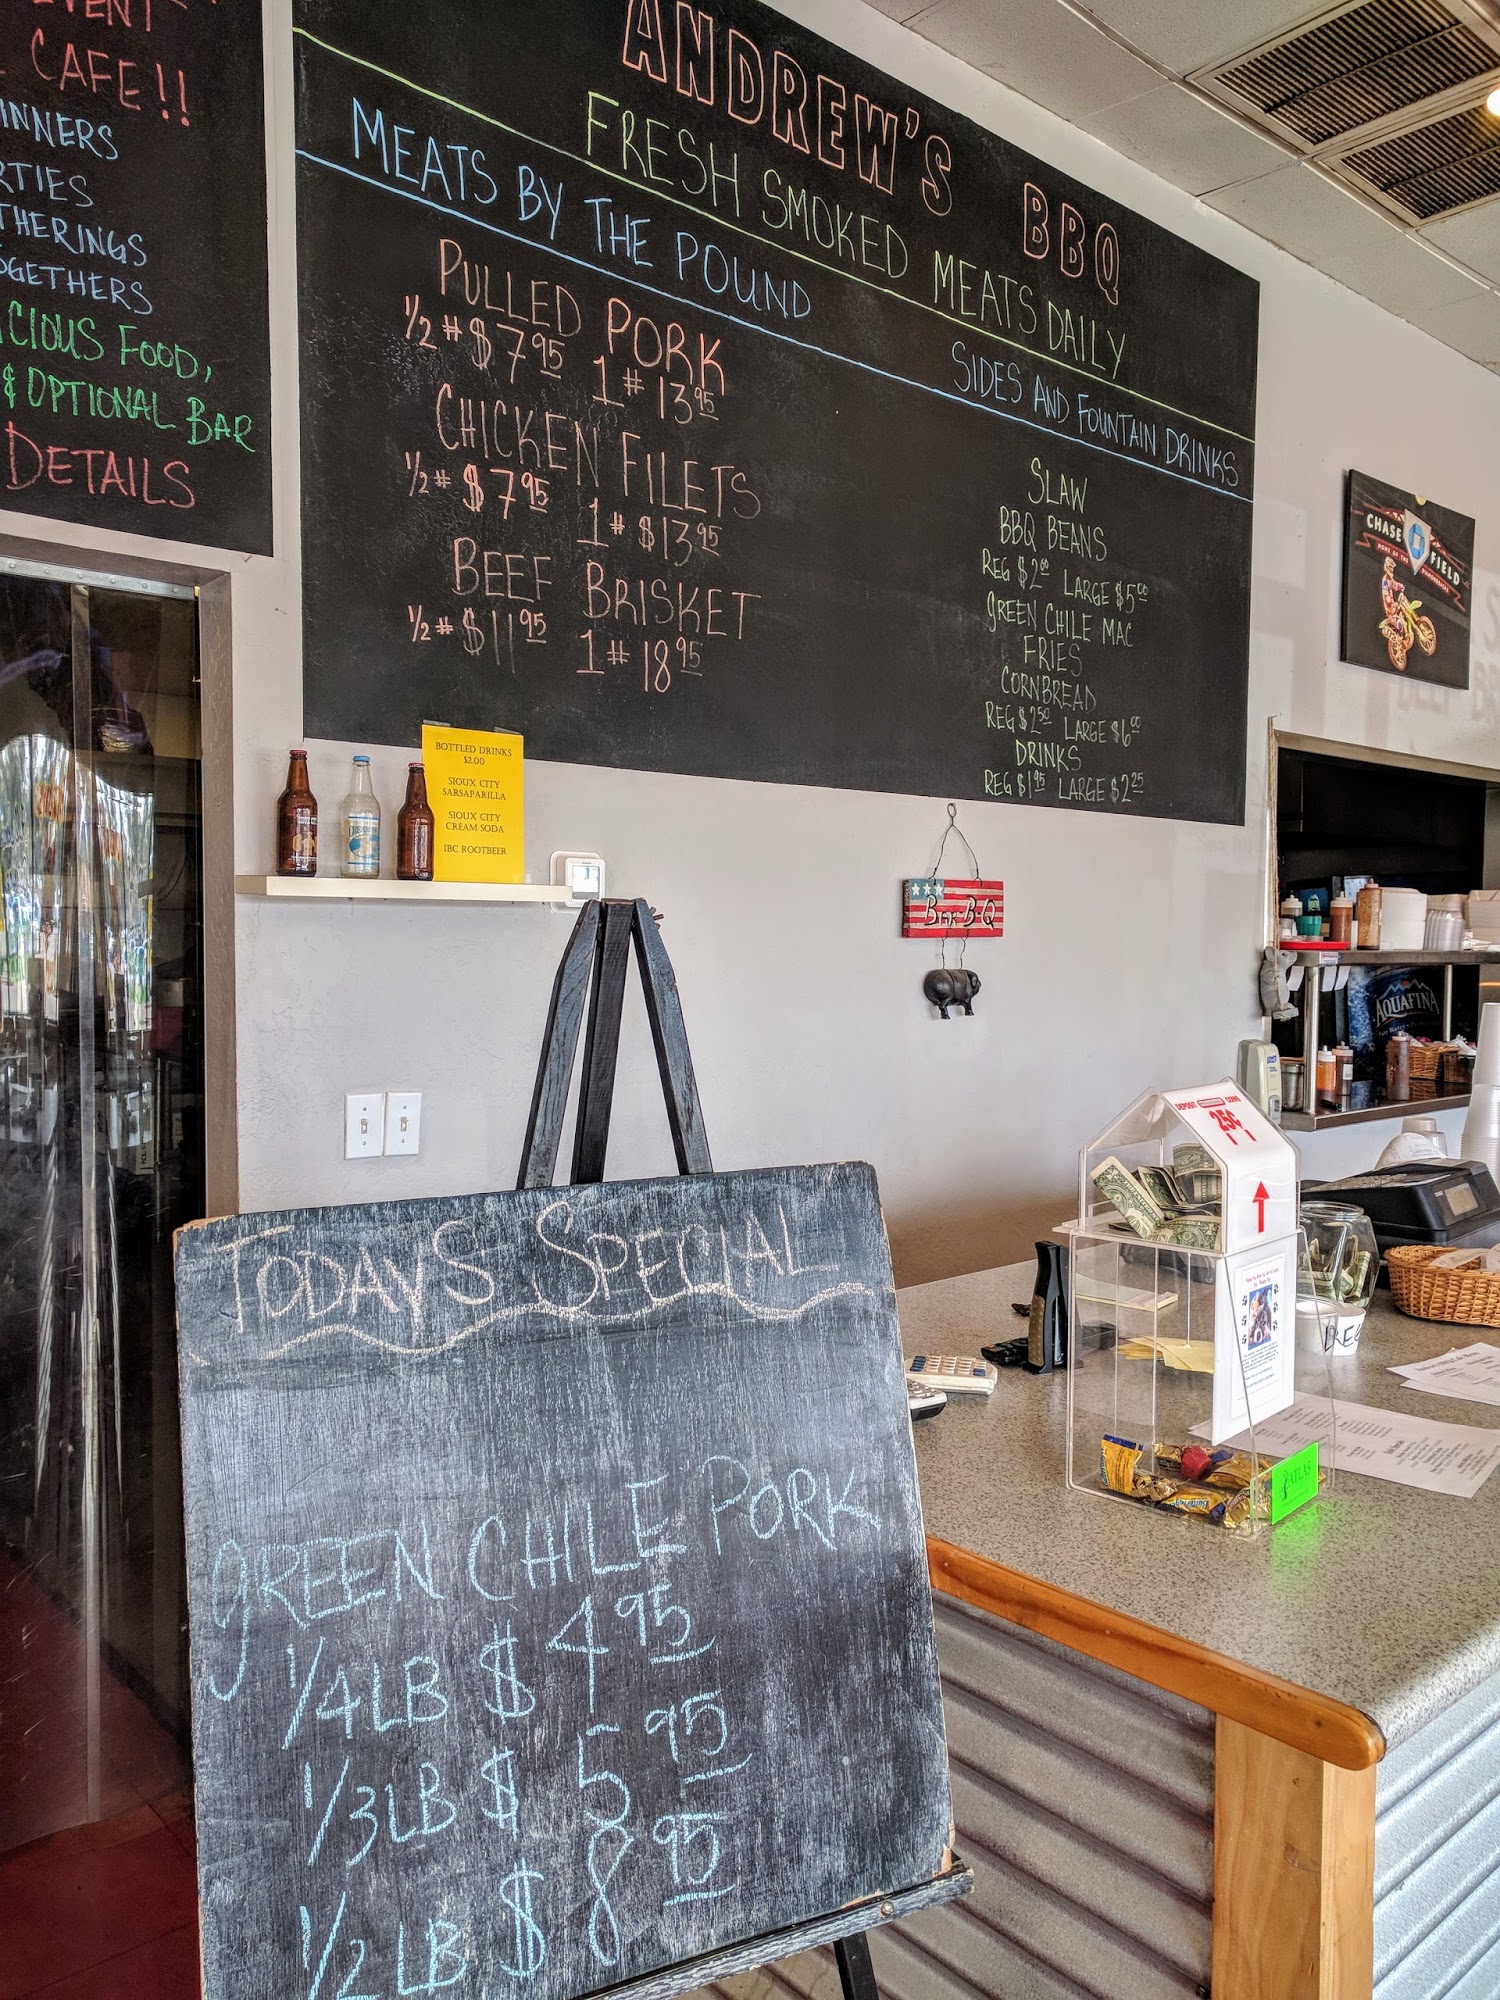 CAFE!!
INNERS
RTIES
THERINGS
OGETHERS
CIOUS FOOD,
& OPTIONAL BAR
DETAILS
ANDREW'S BBQ
FRESH SMOKED MEATS DAILY
MEATS BY THE POUND
PULLED PORK
1/2 # $7.95 1 # 13.95
CHICKEN FILETS
1/2 # $7.95 1 # $13.95
BEEF BRISKET
1/2 # $11.95 1 # 18.95
SIDES AND FOUNTAIN DRINKS
SLAW
BBQ BEANS
REG $2.00 LARGE $5.00
GREEN CHILE MAC
FRIES
CORNBREAD
REG $2.50 LARGE $6.00
DRINKS
REG $1.95 LARGE $2.25
CHASE FIELD
HOME OF THE
BOTTLED DRINKS
$2.00
SIOUX CITY
SARSAPARILLA
SIOUX CITY
CREAM SODA
IBC ROOTBEER
BAR-B-Q
AQUAFINA
DEPOSIT COINS
25¢
ATLAS
TODAYS SPECIAL
GREEN CHILE PORK
1/4 LB $4.95
1/3 LB $5.95
1/2 LB $8.95